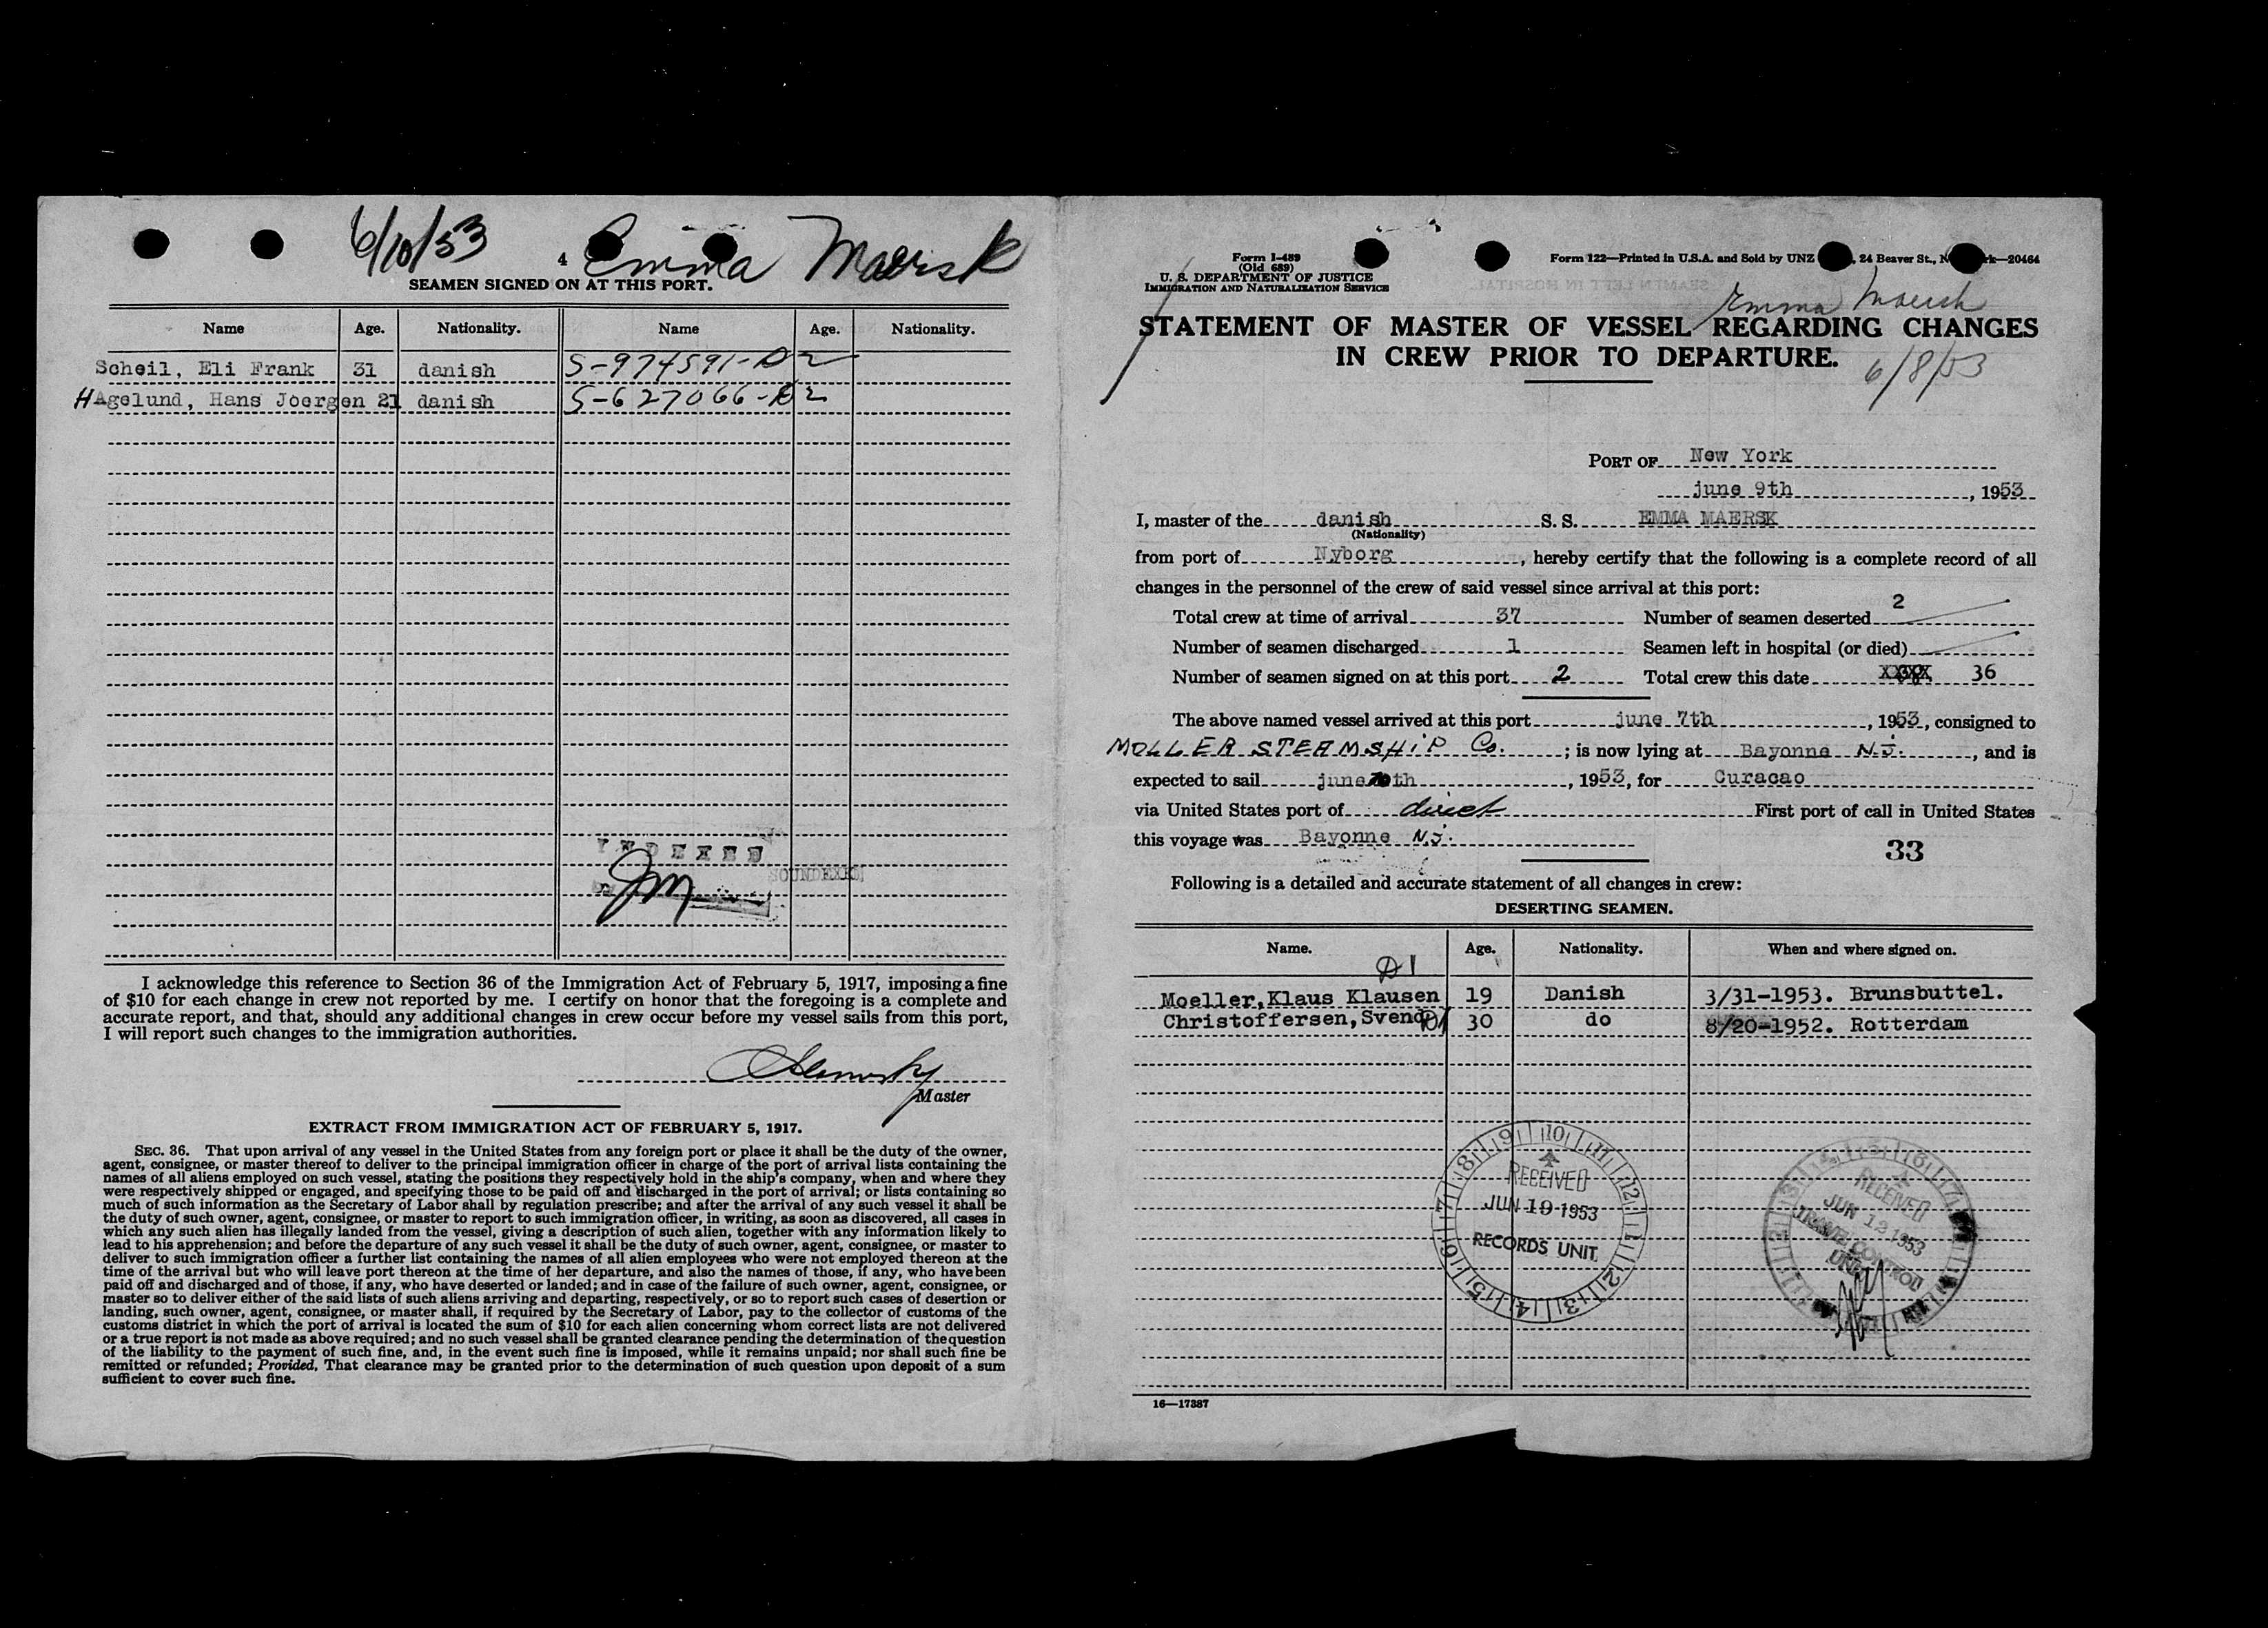 6/10/53 Emma Maersk
4
SEAMEN SIGNED ON AT THIS PORT.
Name Age. Nationality. Name Age. Nationality.
Scheil, Eli Frank 31 danish S-974591-D2
HAgelund, Hans Joergen 21 danish S-627066-D2
INDEXED
SOUNDEXED
I acknowledge this reference to Section 36 of the Immigration Act of February 5, 1917, imposing a fine
of $10 for each change in crew not reported by me. I certify on honor that the foregoing is a complete and
accurate report, and that, should any additional changes in crew occur before my vessel sails from this port,
I will report such changes to the immigration authorities.
Master
EXTRACT FROM IMMIGRATION ACT OF FEBRUARY 5, 1917.
SEC. 36. That upon arrival of any vessel in the United States from any foreign port or place it shall be the duty of the owner,
agent, consignee, or master thereof to deliver to the principal immigration officer in charge of the port of arrival lists containing the
names of all aliens employed on such vessel, stating the positions they respectively hold in the ship's company, when and where they
were respectively shipped or engaged, and specifying those to be paid off and discharged in the port of arrival; or lists containing so
much of such information as the Secretary of Labor shall by regulation prescribe; and after the arrival of any such vessel it shall be
the duty of such owner, agent, consignee, or master to report to such immigration officer, in writing, as soon as discovered, all cases in
which any such alien has illegally landed from the vessel, giving a description of such alien, together with any information likely to
lead to his apprehension; and before the departure of any such vessel it shall be the duty of such owner, agent, consignee, or master to
deliver to such immigration officer a further list containing the names of all alien employees who were not employed thereon at the
time of the arrival but who will leave port thereon at the time of her departure, and also the names of those, if any, who have been
paid off and discharged and of those, if any, who have deserted or landed; and in case of the failure of such owner, agent, consignee, or
master so to deliver either of the said lists of such aliens arriving and departing, respectively, or so to report such cases of desertion or
landing, such owner, agent, consignee, or master shall, if required by the Secretary of Labor, pay to the collector of customs of the
customs district in which the port of arrival is located the sum of $10 for each alien concerning whom correct lists are not delivered
or a true report is not made as above required; and no such vessel shall be granted clearance pending the determination of the question
of the liability to the payment of such fine, and, in the event such fine is imposed, while it remains unpaid; nor shall such fine be
remitted or refunded; Provided, That clearance may be granted prior to the determination of such question upon deposit of a sum
sufficient to cover such fine.
Form I-489
(Old 689)
U. S. DEPARTMENT OF JUSTICE
IMMIGRATION AND NATURALIZATION SERVICE
Form 122—Printed in U.S.A. and Sold by UNZ 24 Beaver St., 20464
Emma Maersk
STATEMENT OF MASTER OF VESSEL REGARDING CHANGES
IN CREW PRIOR TO DEPARTURE.
6/8/53
PORT OF New York
june 9th, 1953
I, master of the danish S. S. EMMA MAERSK
(Nationality)
from port of Nyborg, hereby certify that the following is a complete record of all
changes in the personnel of the crew of said vessel since arrival at this port:
Total crew at time of arrival 37 Number of seamen deserted 2
Number of seamen discharged 1 Seamen left in hospital (or died)
Number of seamen signed on at this port 2 Total crew this date 36
The above named vessel arrived at this port june 7th, 1953, consigned to
MOLLER STEAMSHIP Co.; is now lying at Bayonne N.J., and is
expected to sail june 10th, 1953, for Curacao
via United States port of direct First port of call in United States
this voyage was Bayonne N.J.
33
Following is a detailed and accurate statement of all changes in crew:
DESERTING SEAMEN.
Name. Age. Nationality. When and where signed on.
D1
Moeller, Klaus Klausen 19 Danish 3/31-1953. Brunsbuttel.
Christoffersen, Svend D1 30 do 8/20-1952. Rotterdam
RECEIVED
JUN 19 1953
RECORDS UNIT
RECEIVED
JUN 12 1953
TRAVEL CONTROL
UNIT
16—17387